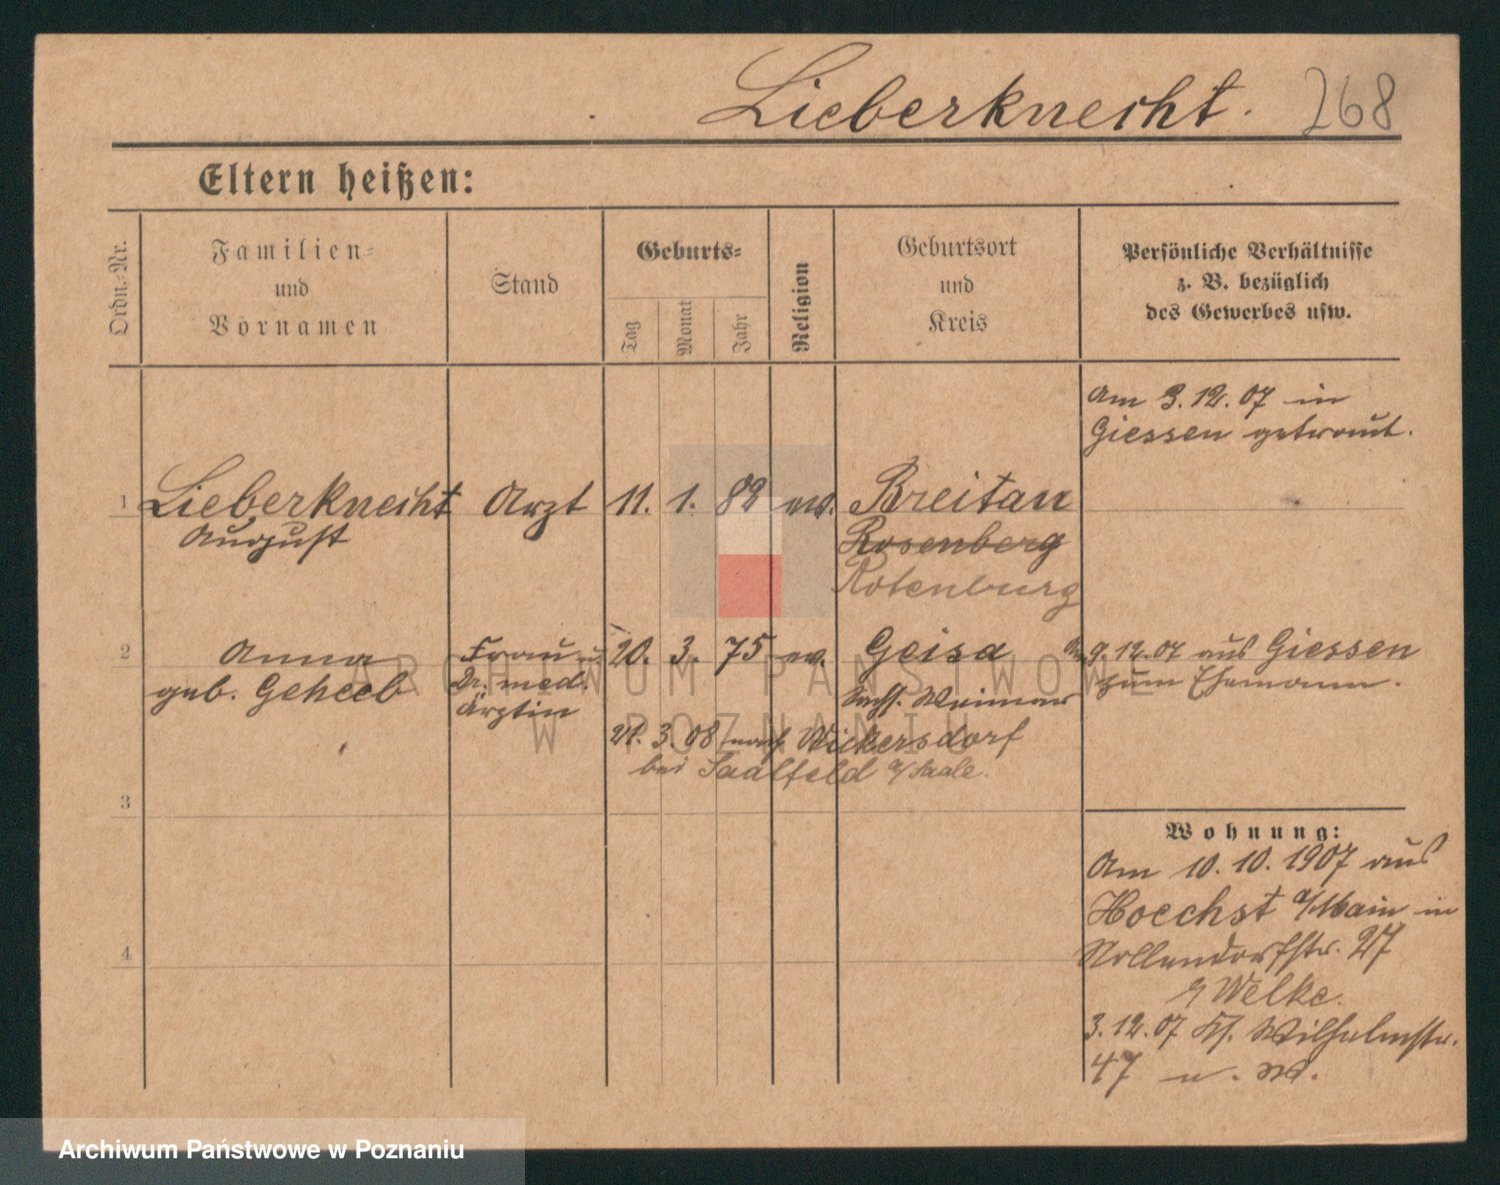 Lieberknecht. 268
Eltern heißen:
Ordn.-Nr.
Familien-
und
Vornamen
Stand
Geburts-
Tag
Monat
Jahr
Religion
Geburtsort
und
Kreis
Persönliche Verhältnisse
z. B. bezüglich
des Gewerbes usw.
Am 3.12.07 in
Giessen getraut.
1 Lieberknecht Arzt 11. 1. 82 ev. Breitau
August
Rosenberg
Rotenburg
2 Anna Frau u. 20. 3. 75 ev. Geisa
geb. Geheeb Dr. med. Sachs. Weimar
Ärztin
9.12.07 aus Giessen
zum Ehemann.
21. 3. 08 nach Wickersdorf
bei Saalfeld a/Saale.
3
Wohnung:
Am 10.10.1907 aus
Hoechst a/Main in
Nollendorfstr. 27
Welke.
4
3.12.07 Wilhelmstr.
47 u. W.
ARCHIWUM PAŃSTWOWE
W POZNANIU
Archiwum Państwowe w Poznaniu